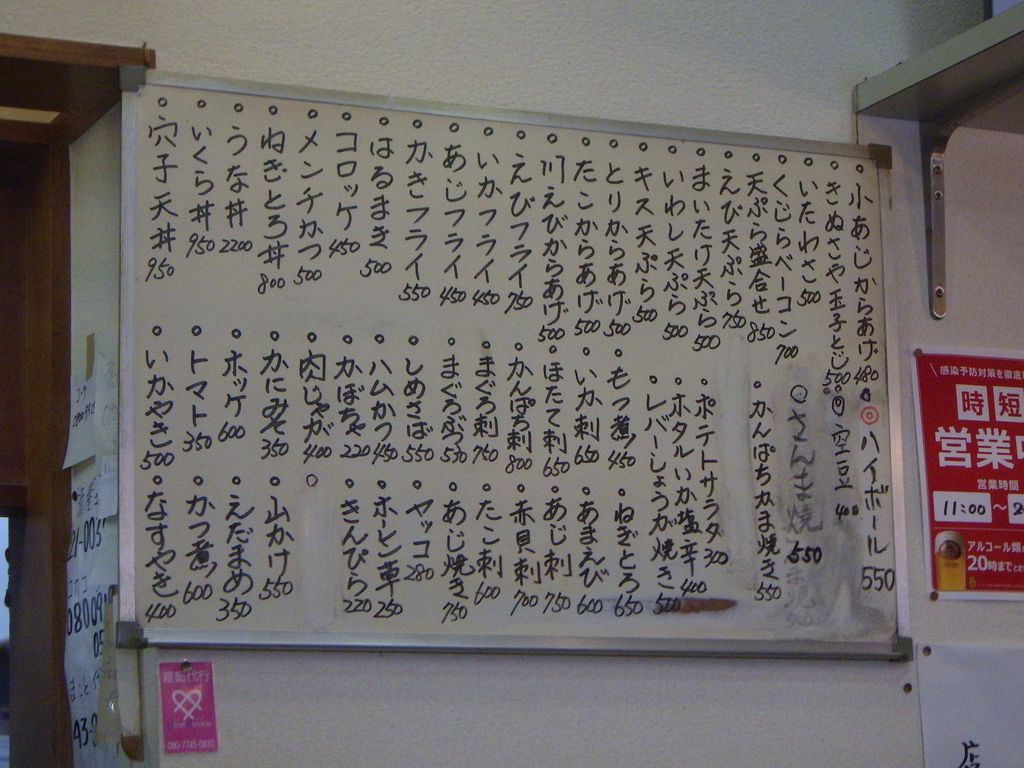 小あじからあげ 480
◎ハイボール 550
きぬさや玉子とじ 500
◎空豆 400
いたわさ 500
さんま焼 550
くじらベーコン 700
天ぷら盛合せ 850
かんぱちかま焼き 550
えび天ぷら 750
まいたけ天ぷら 500
ポテトサラダ 300
いわし天ぷら 500
ホタルいか塩辛 400
キス天ぷら 500
レバーしょうが焼き 500
とりからあげ 500
もつ煮 450
ねぎとろ 650
たこからあげ 500
いか刺 650
あまえび 600
川えびからあげ 500
ほたて刺 650
あじ刺 750
えびフライ 750
かんぱち刺 800
赤貝刺 700
いかフライ 450
まぐろ刺 750
たこ刺 600
あじフライ 450
まぐろぶつ 530
あじ焼き 750
かきフライ 550
しめさば 550
ヤッコ 280
はるまき 500
ハムかつ 450
ホーレン草 250
コロッケ 450
かぼちゃ 220
きんぴら 220
メンチかつ 500
肉じゃが 400
ねぎとろ丼 800
かにみそ 350
山かけ 550
うな丼 2200
ホッケ 600
えだまめ 350
いくら丼 950
トマト 350
かつ煮 600
穴子天丼 950
いかやき 500
なすやき 400
感染予防対策を徹底
時短
営業中
営業時間
11:00～2
アルコール類
20時まで
運転代行
080-7745-0810
店